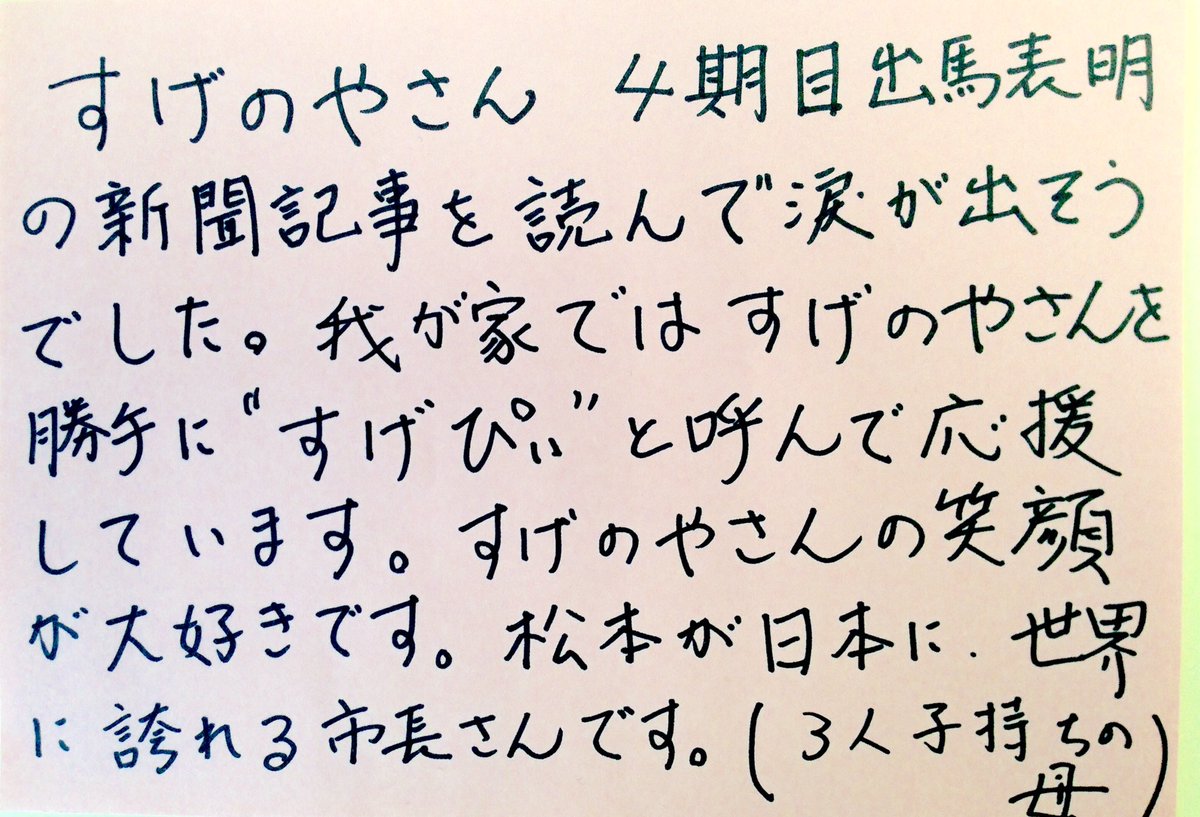 すげのやさん 4期目出馬表明
の新聞記事を読んで涙が出そう
でした。我が家ではすげのやさんを
勝手に"すげぴぃ"と呼んで応援
しています。すげのやさんの笑顔
が大好きです。松本が日本に、世界
に誇れる市長さんです。(3人子持ちの
母)